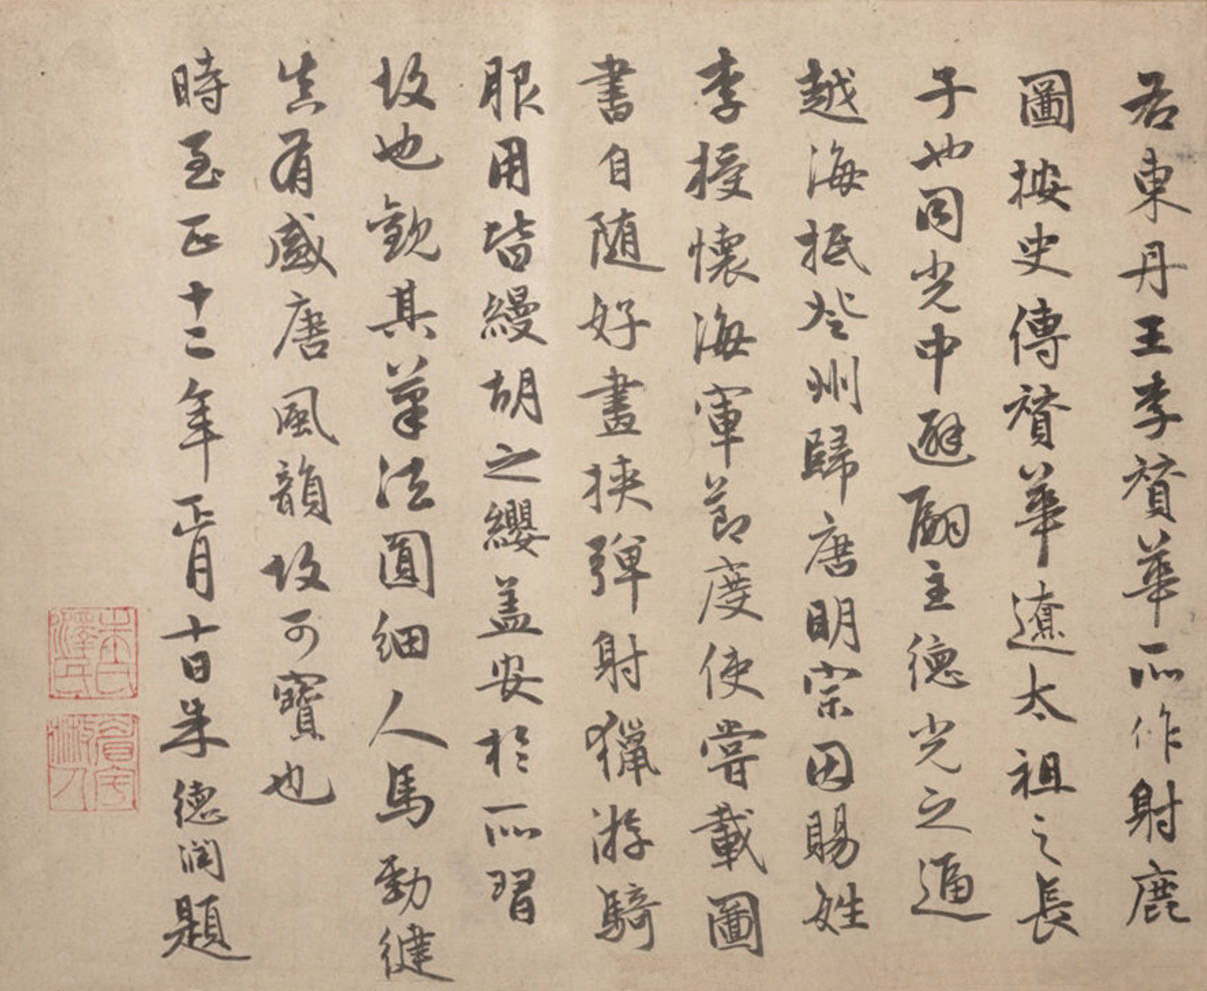 右東丹王李賛華所作射鹿
圖按史傳賛華遼太祖之長
子也同光中避嗣主德光之逼
越海抵登州歸唐明宗因賜姓
李授懷海軍節度使嘗載圖
書自随好畫挾彈射獵游騎
服用皆縵胡之纓盖安於所習
故也觀其筆法圓細人馬勁健
真有盛唐風韻故可寶也
時至正十二年正月十日朱德潤題
朱氏澤民